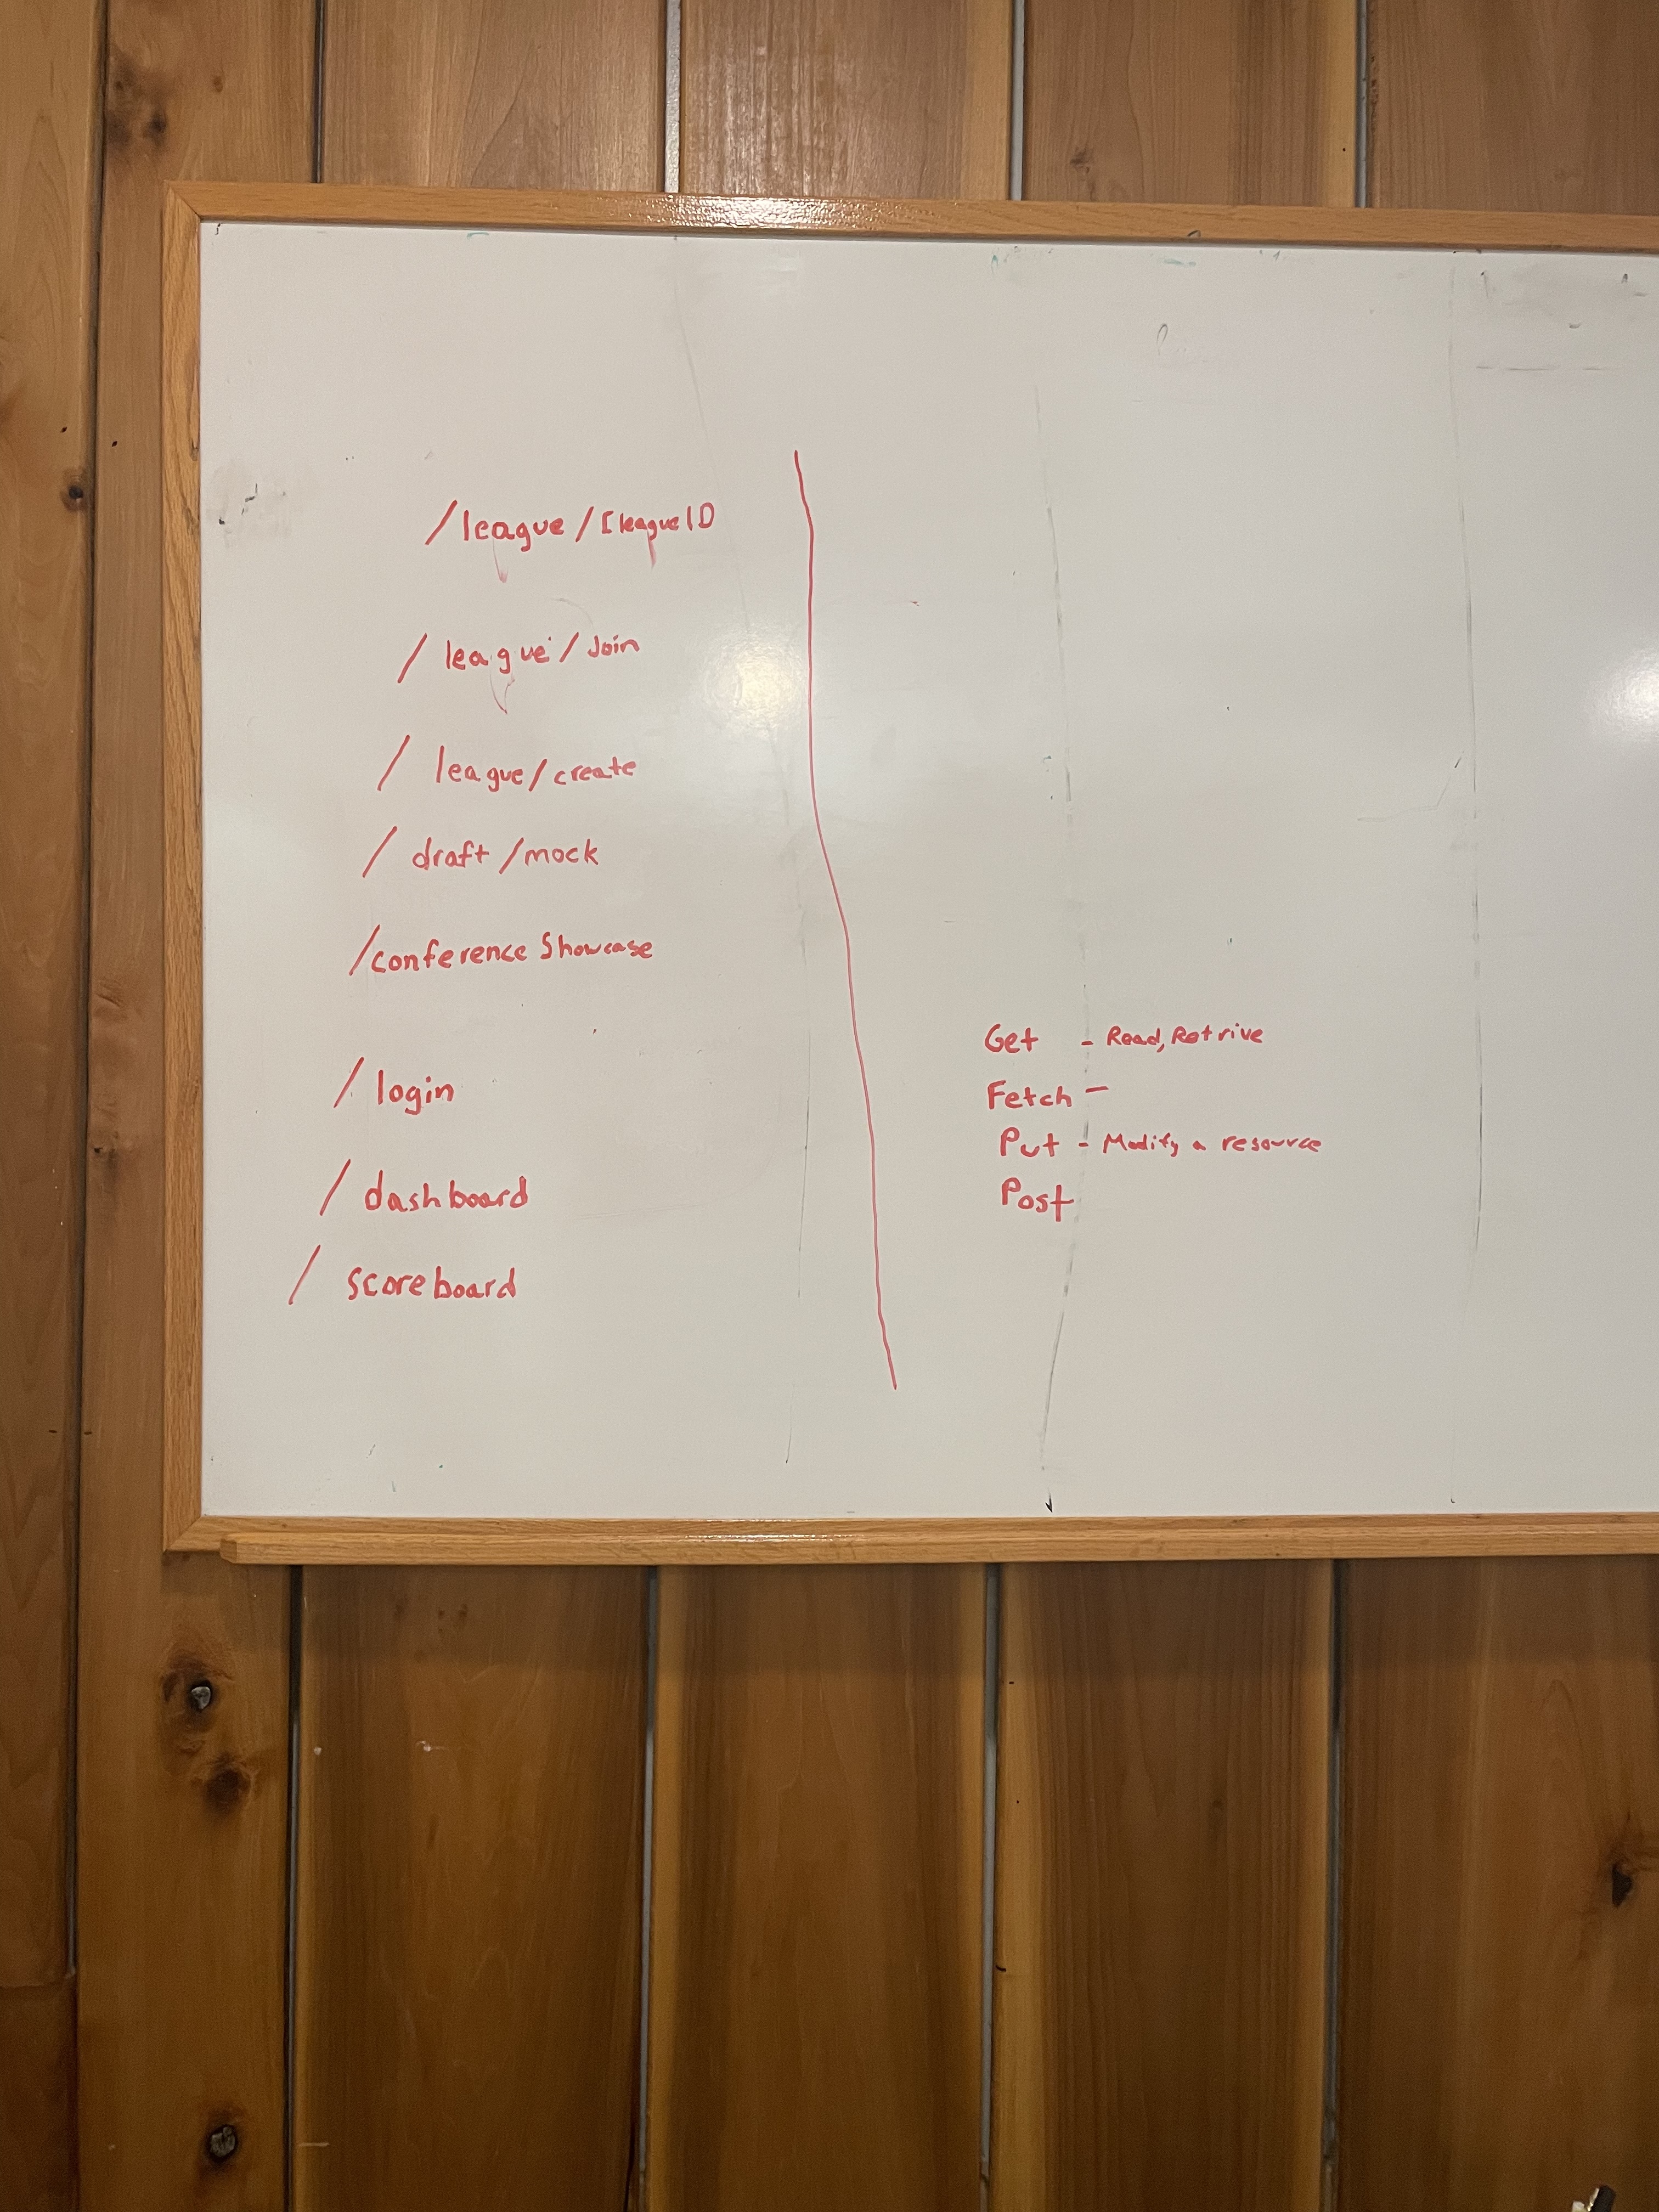 /league/[leagueID
/league/Join
/league/create
/draft/mock
/conference Showcase
/login
/dashboard
/scoreboard
Get - Read, Retrive
Fetch -
Put - Modify a resource
Post